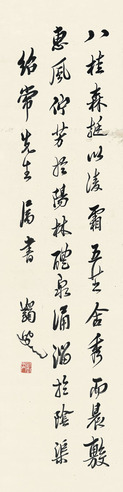 八桂森挺以凌霜五芝含秀而晨敷
惠風佇芳於陽林醴泉涌溜於陰渠
紹常先生屬書